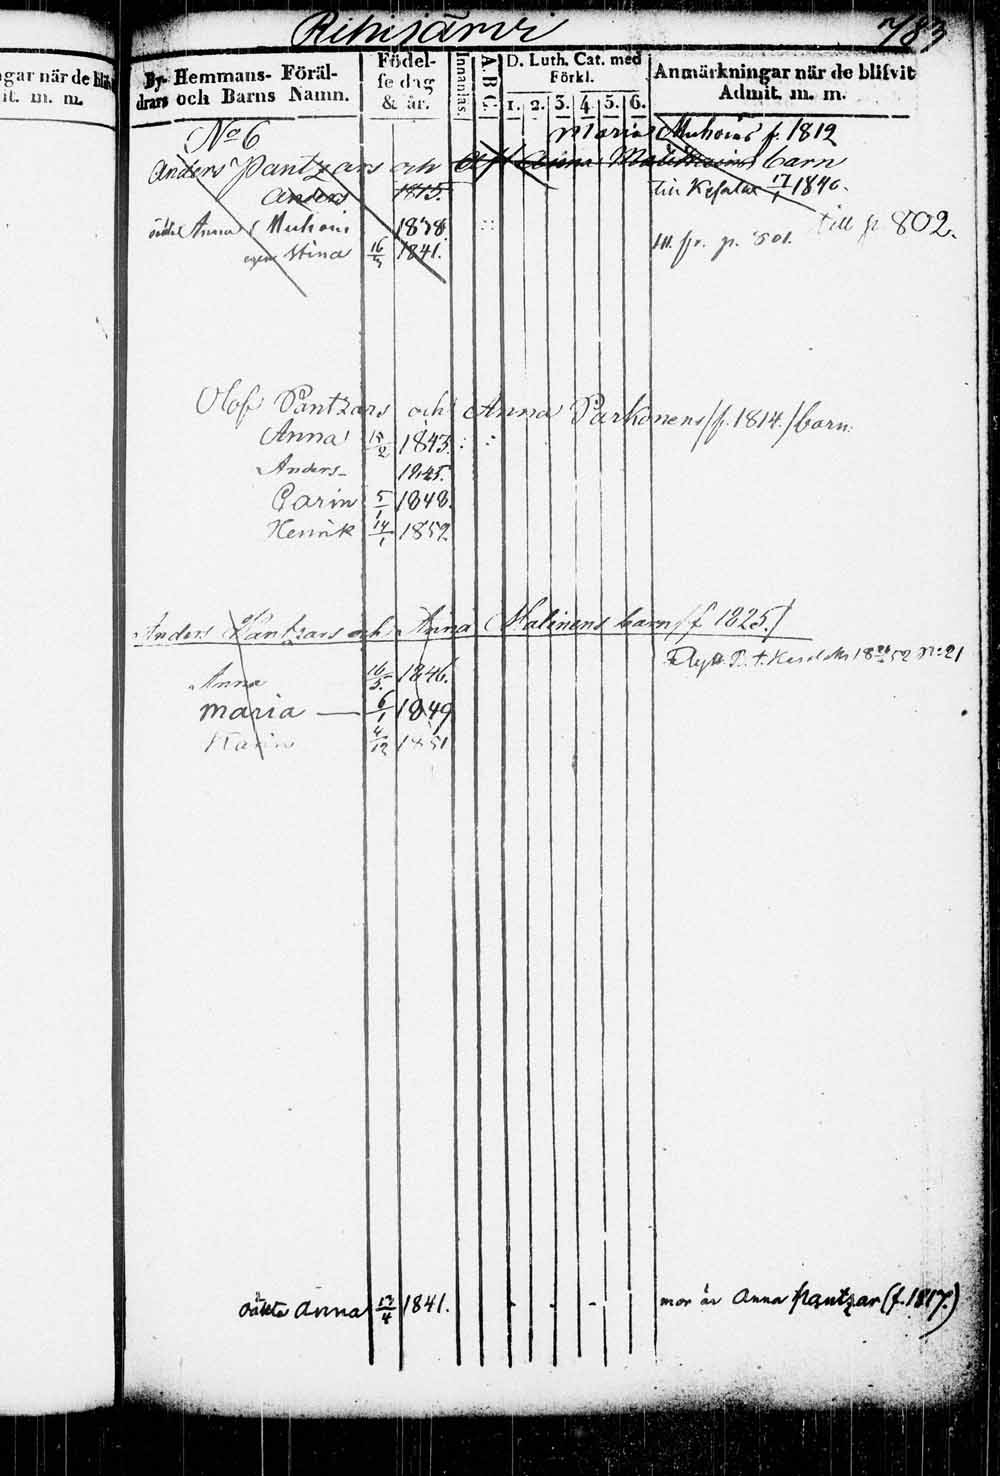 gar när de blifv
it. m. m.
Rihijärvi 783
By- Hemmans- Föräl-
drars och Barns Namn.
Födel-
se dag
& år.
Innanläs.
A.B.C.
D. Luth. Cat. med
Förkl.
1. 2. 3. 4. 5. 6.
Anmärkningar när de blifvit
Admit. m. m.
No 6
Maria Muhoins f. 1812
Anders Pantzars och barn
Anders 1815. 17/1 1846.
oäkta Anna Muhoin 1838 till p 802.
Stina 16/3 1841. fr. p. 801.
Olof Pantzars och Anna Parkonens /f. 1814./ barn:
Anna 15/2 1843.
Anders 1845.
Carin 5/1 1848.
Henrik 14/1 1852.
Anders Pantzars och Anna Malinens barn /f 1825./
No 21
Anna 16/5. 1846.
Maria — 6/1 1849
Karin 4/12 1851
oäkta Anna 13/4 1841. mor är Anna Pantzar (f. 1817.)